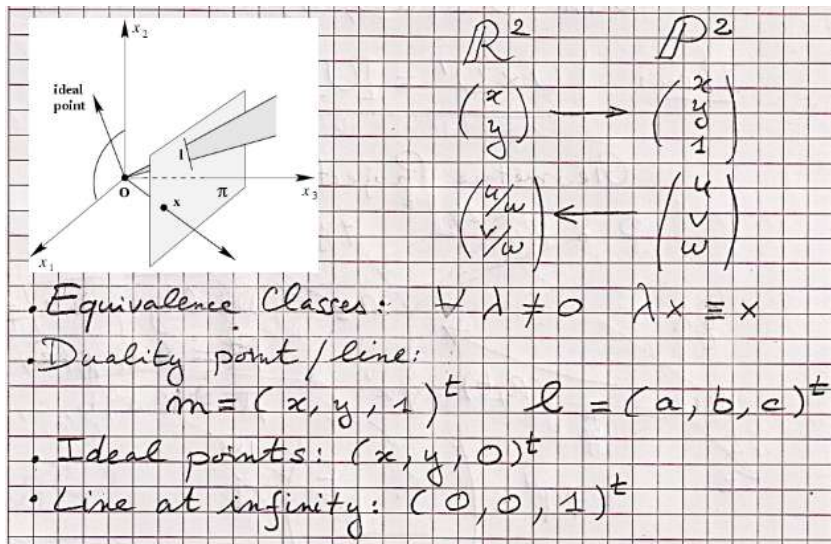 x₂
ideal
point
l
O
π
x₃
x
x₁
ℝ² ℙ²
(x y) → (x y 1)
(u/w v/w) ← (u v w)
· Equivalence Classes: ∀ λ ≠ 0 λx ≡ x
· Duality point/line:
m = (x, y, 1)ᵗ l = (a, b, c)ᵗ
· Ideal points: (x, y, 0)ᵗ
· Line at infinity: (0, 0, 1)ᵗ